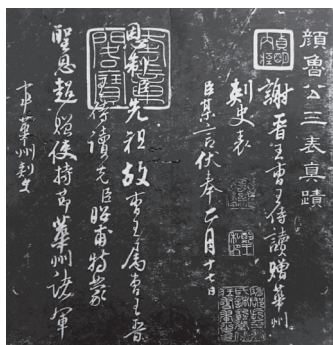 顏魯公三表真蹟
謝晉王曹王侍讀贈華州
刺史表
臣某言伏奉二月十七日
恩制先祖故曹王屬曹王晉
王侍讀先臣昭甫特蒙
聖恩超贈使持節華州諸軍
事華州刺史